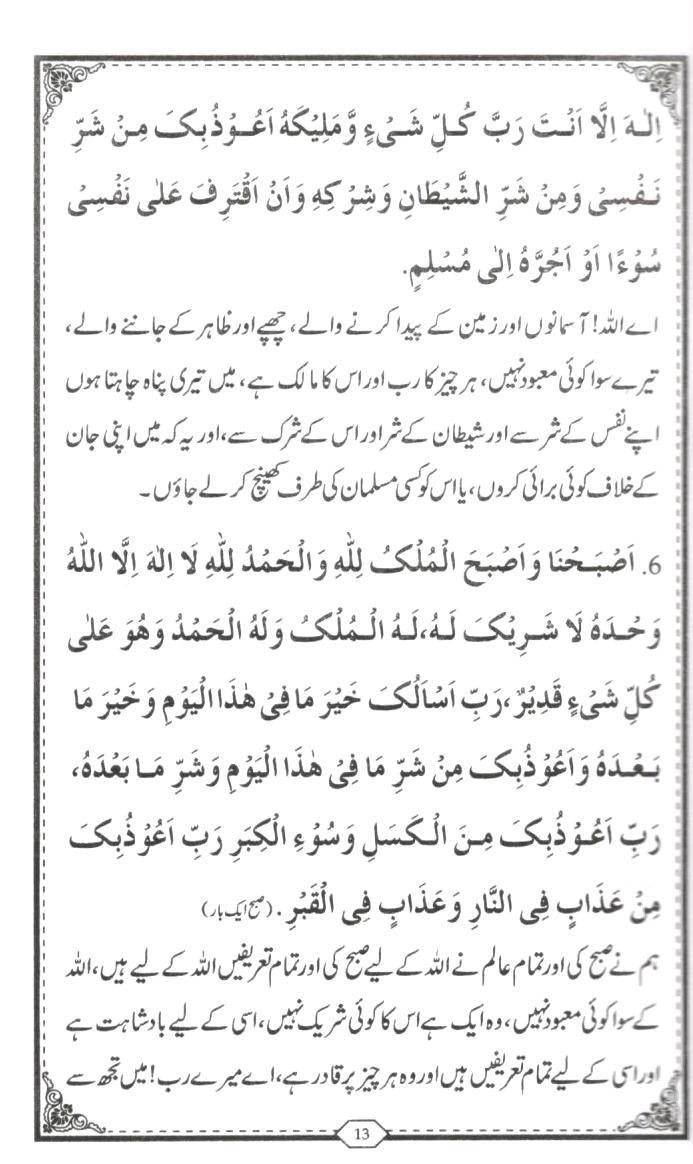 اِلٰـهَ اِلَّا اَنْـتَ رَبَّ كُـلِّ شَـیْءٍ وَّمَلِیْكَهٗ اَعُـوْذُبِكَ مِـنْ شَرِّ
نَـفْسِیْ وَمِنْ شَرِّ الشَّیْطَانِ وَشِرْكِهٖ وَاَنْ اَقْتَرِفَ عَلٰی نَفْسِیْ
سُوْءًا اَوْ اَجُرَّهٗ اِلٰی مُسْلِمٍ.
اے اللہ! آسمانوں اور زمین کے پیدا کرنے والے، چھپے اور ظاہر کے جاننے والے،
تیرے سوا کوئی معبود نہیں، ہر چیز کا رب اور اس کا مالک ہے، میں تیری پناہ چاہتا ہوں
اپنے نفس کے شر سے اور شیطان کے شر اور اس کے شرک سے، اور یہ کہ میں اپنی جان
کے خلاف کوئی برائی کروں، یا اس کو کسی مسلمان کی طرف کھینچ کر لے جاؤں۔
6. اَصْبَـحْنَا وَاَصْبَحَ الْمُلْكُ لِلّٰهِ وَالْحَمْدُ لِلّٰهِ لَا اِلٰهَ اِلَّا اللّٰهُ
وَحْـدَهٗ لَا شَـرِیْكَ لَـهٗ،لَـهُ الْـمُلْكُ وَلَهُ الْحَمْدُ وَهُوَ عَلٰی
كُلِّ شَیْءٍ قَدِیْرٌ،رَبِّ اَسْاَلُكَ خَیْرَ مَا فِیْ هٰذَا الْیَوْمِ وَخَیْرَ مَا
بَـعْـدَهٗ وَاَعُوْذُبِكَ مِنْ شَرِّ مَا فِیْ هٰذَا الْیَوْمِ وَشَرِّ مَـا بَعْدَهٗ،
رَبِّ اَعُـوْذُبِكَ مِـنَ الْـكَسَلِ وَسُوْءِ الْكِبَرِ رَبِّ اَعُوْذُبِكَ
مِنْ عَذَابٍ فِی النَّارِ وَعَذَابٍ فِی الْقَبْرِ. (صبح ایک بار)
ہم نے صبح کی اور تمام عالم نے اللہ کے لیے صبح کی اور تمام تعریفیں اللہ کے لیے ہیں، اللہ
کے سوا کوئی معبود نہیں، وہ ایک ہے اس کا کوئی شریک نہیں، اسی کے لیے بادشاہت ہے
اور اسی کے لیے تمام تعریفیں ہیں اور وہ ہر چیز پر قادر ہے، اے میرے رب! میں تجھ سے
13